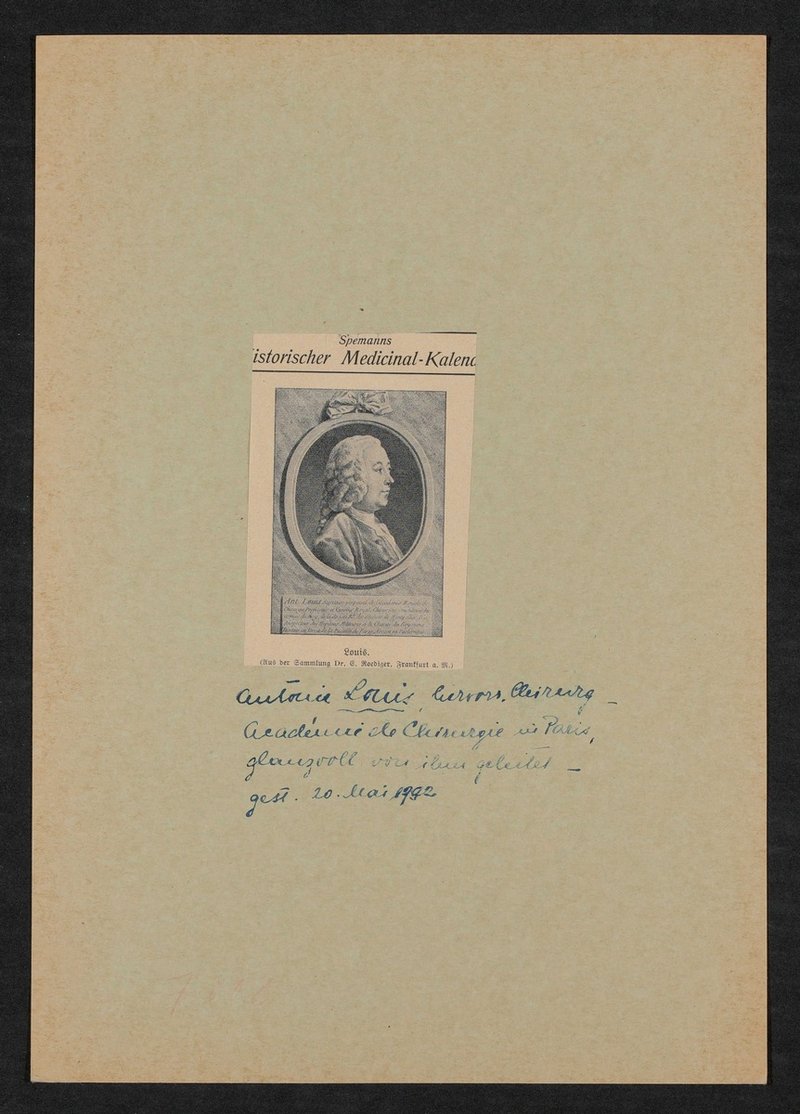 Spemanns
istorischer Medicinal-Kalend
Ant. Louis
Louis.
(Aus der Sammlung Dr. E. Roediger, Frankfurt a. M.)
Antoine Louis, hervorr. Chirurg –
Académie de Chirurgie in Paris,
glanzvoll von ihm geleitet –
gest. 20. Mai 1792